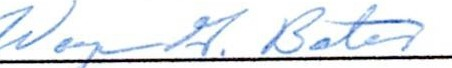 Wayne H. Bates